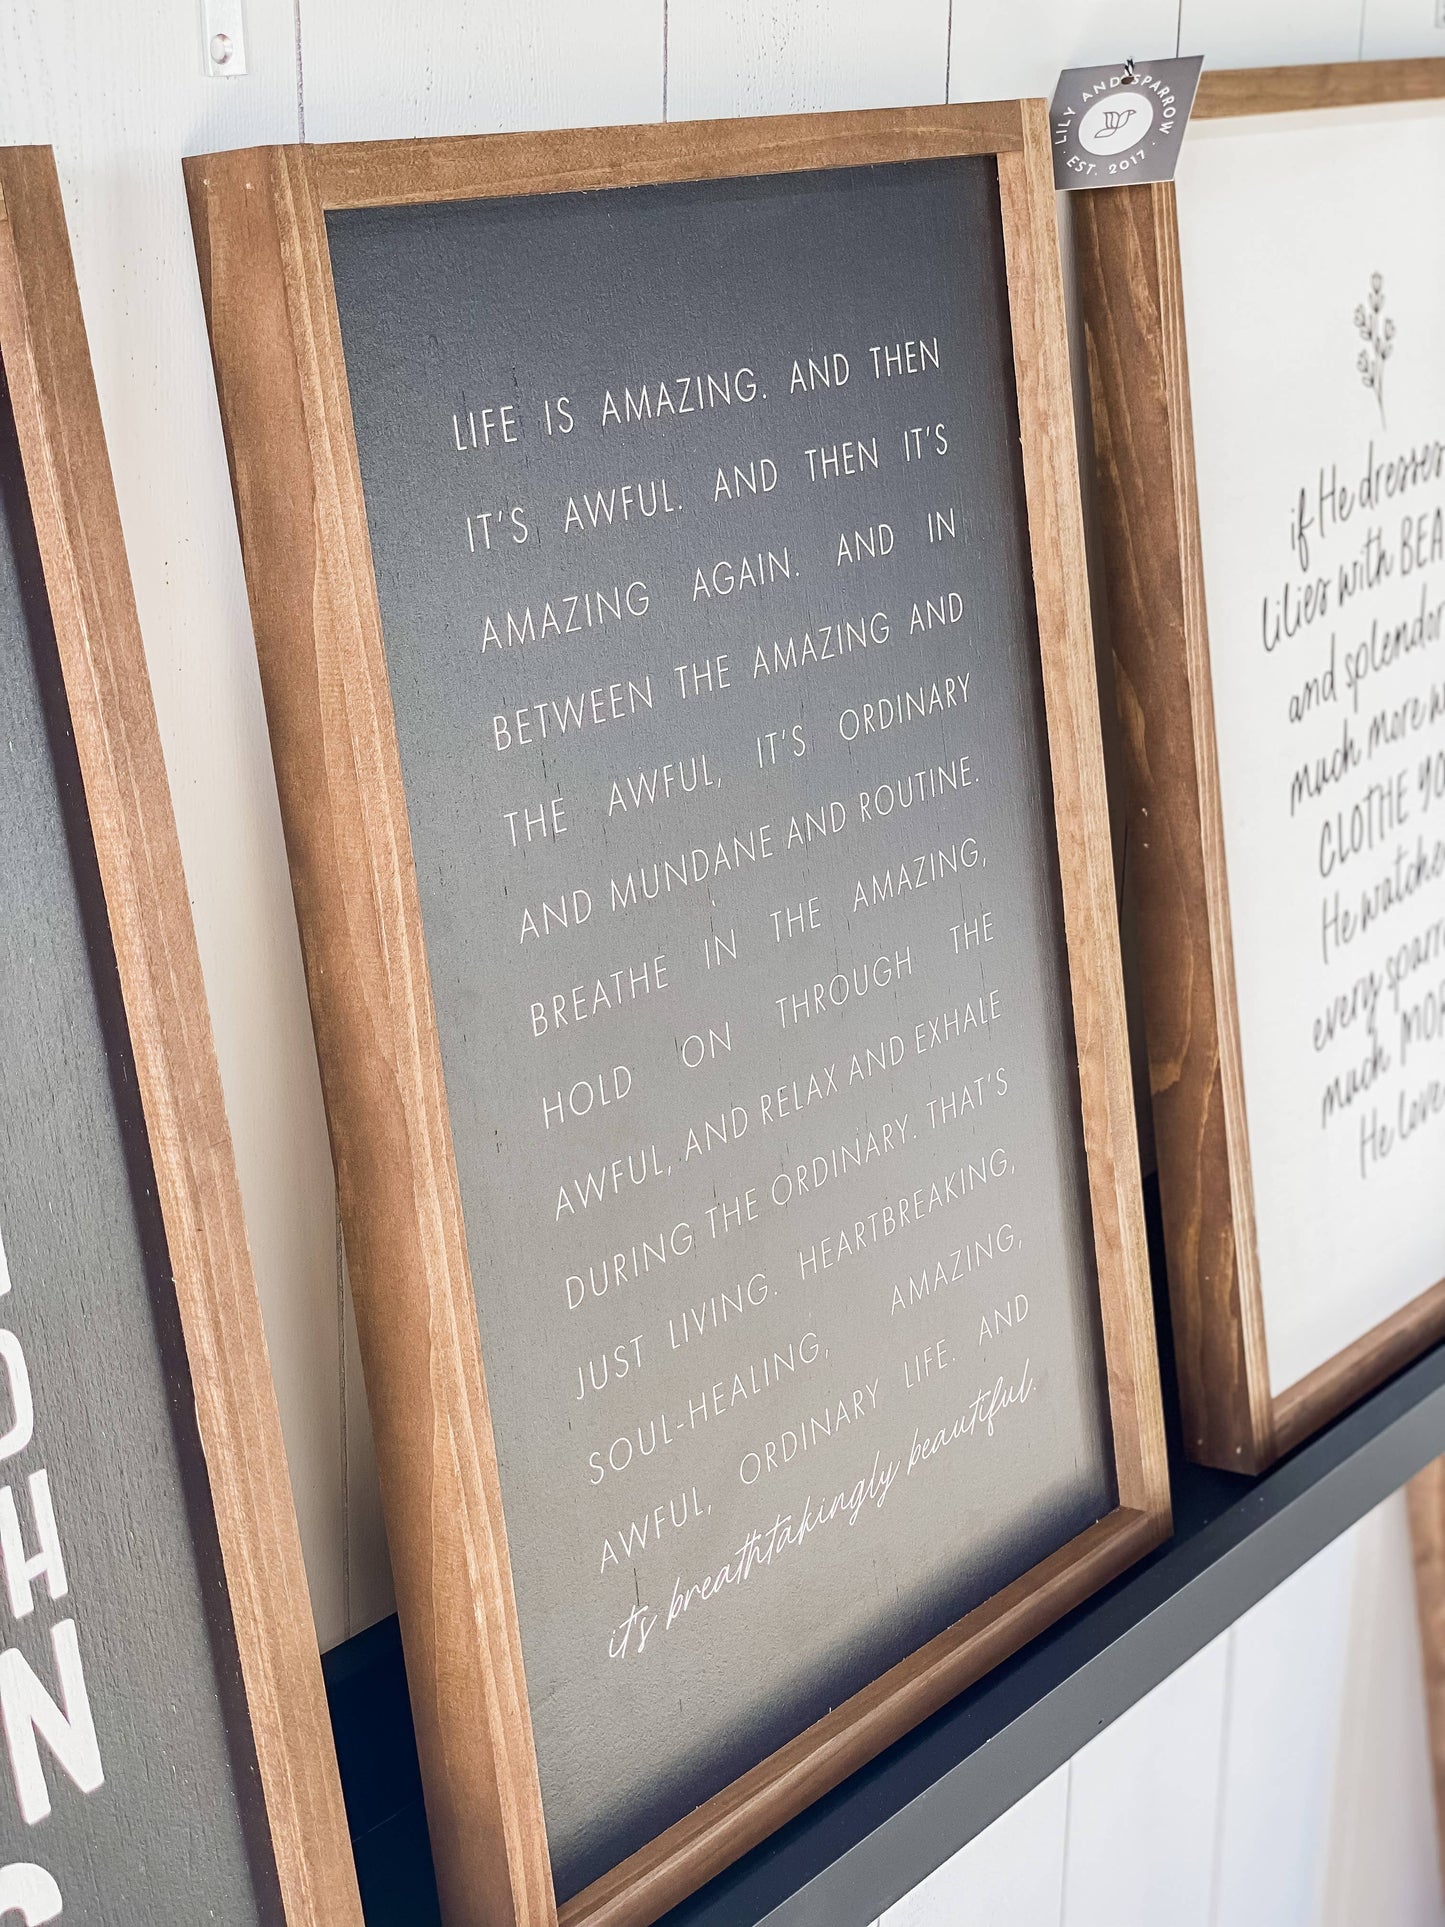 LILY AND SPARROW
· EST. 2017 ·
LIFE IS AMAZING. AND THEN
IT'S AWFUL. AND THEN IT'S
AMAZING AGAIN. AND IN
BETWEEN THE AMAZING AND
THE AWFUL, IT'S ORDINARY
AND MUNDANE AND ROUTINE.
BREATHE IN THE AMAZING,
HOLD ON THROUGH THE
AWFUL, AND RELAX AND EXHALE
DURING THE ORDINARY. THAT'S
JUST LIVING. HEARTBREAKING,
SOUL-HEALING, AMAZING,
AWFUL, ORDINARY LIFE. AND
it's breathtakingly beautiful.
if He dresses
lilies with BEA
and splendor
much more w
CLOTHE YO
He watche
every sparr
much MOR
He love
OHN